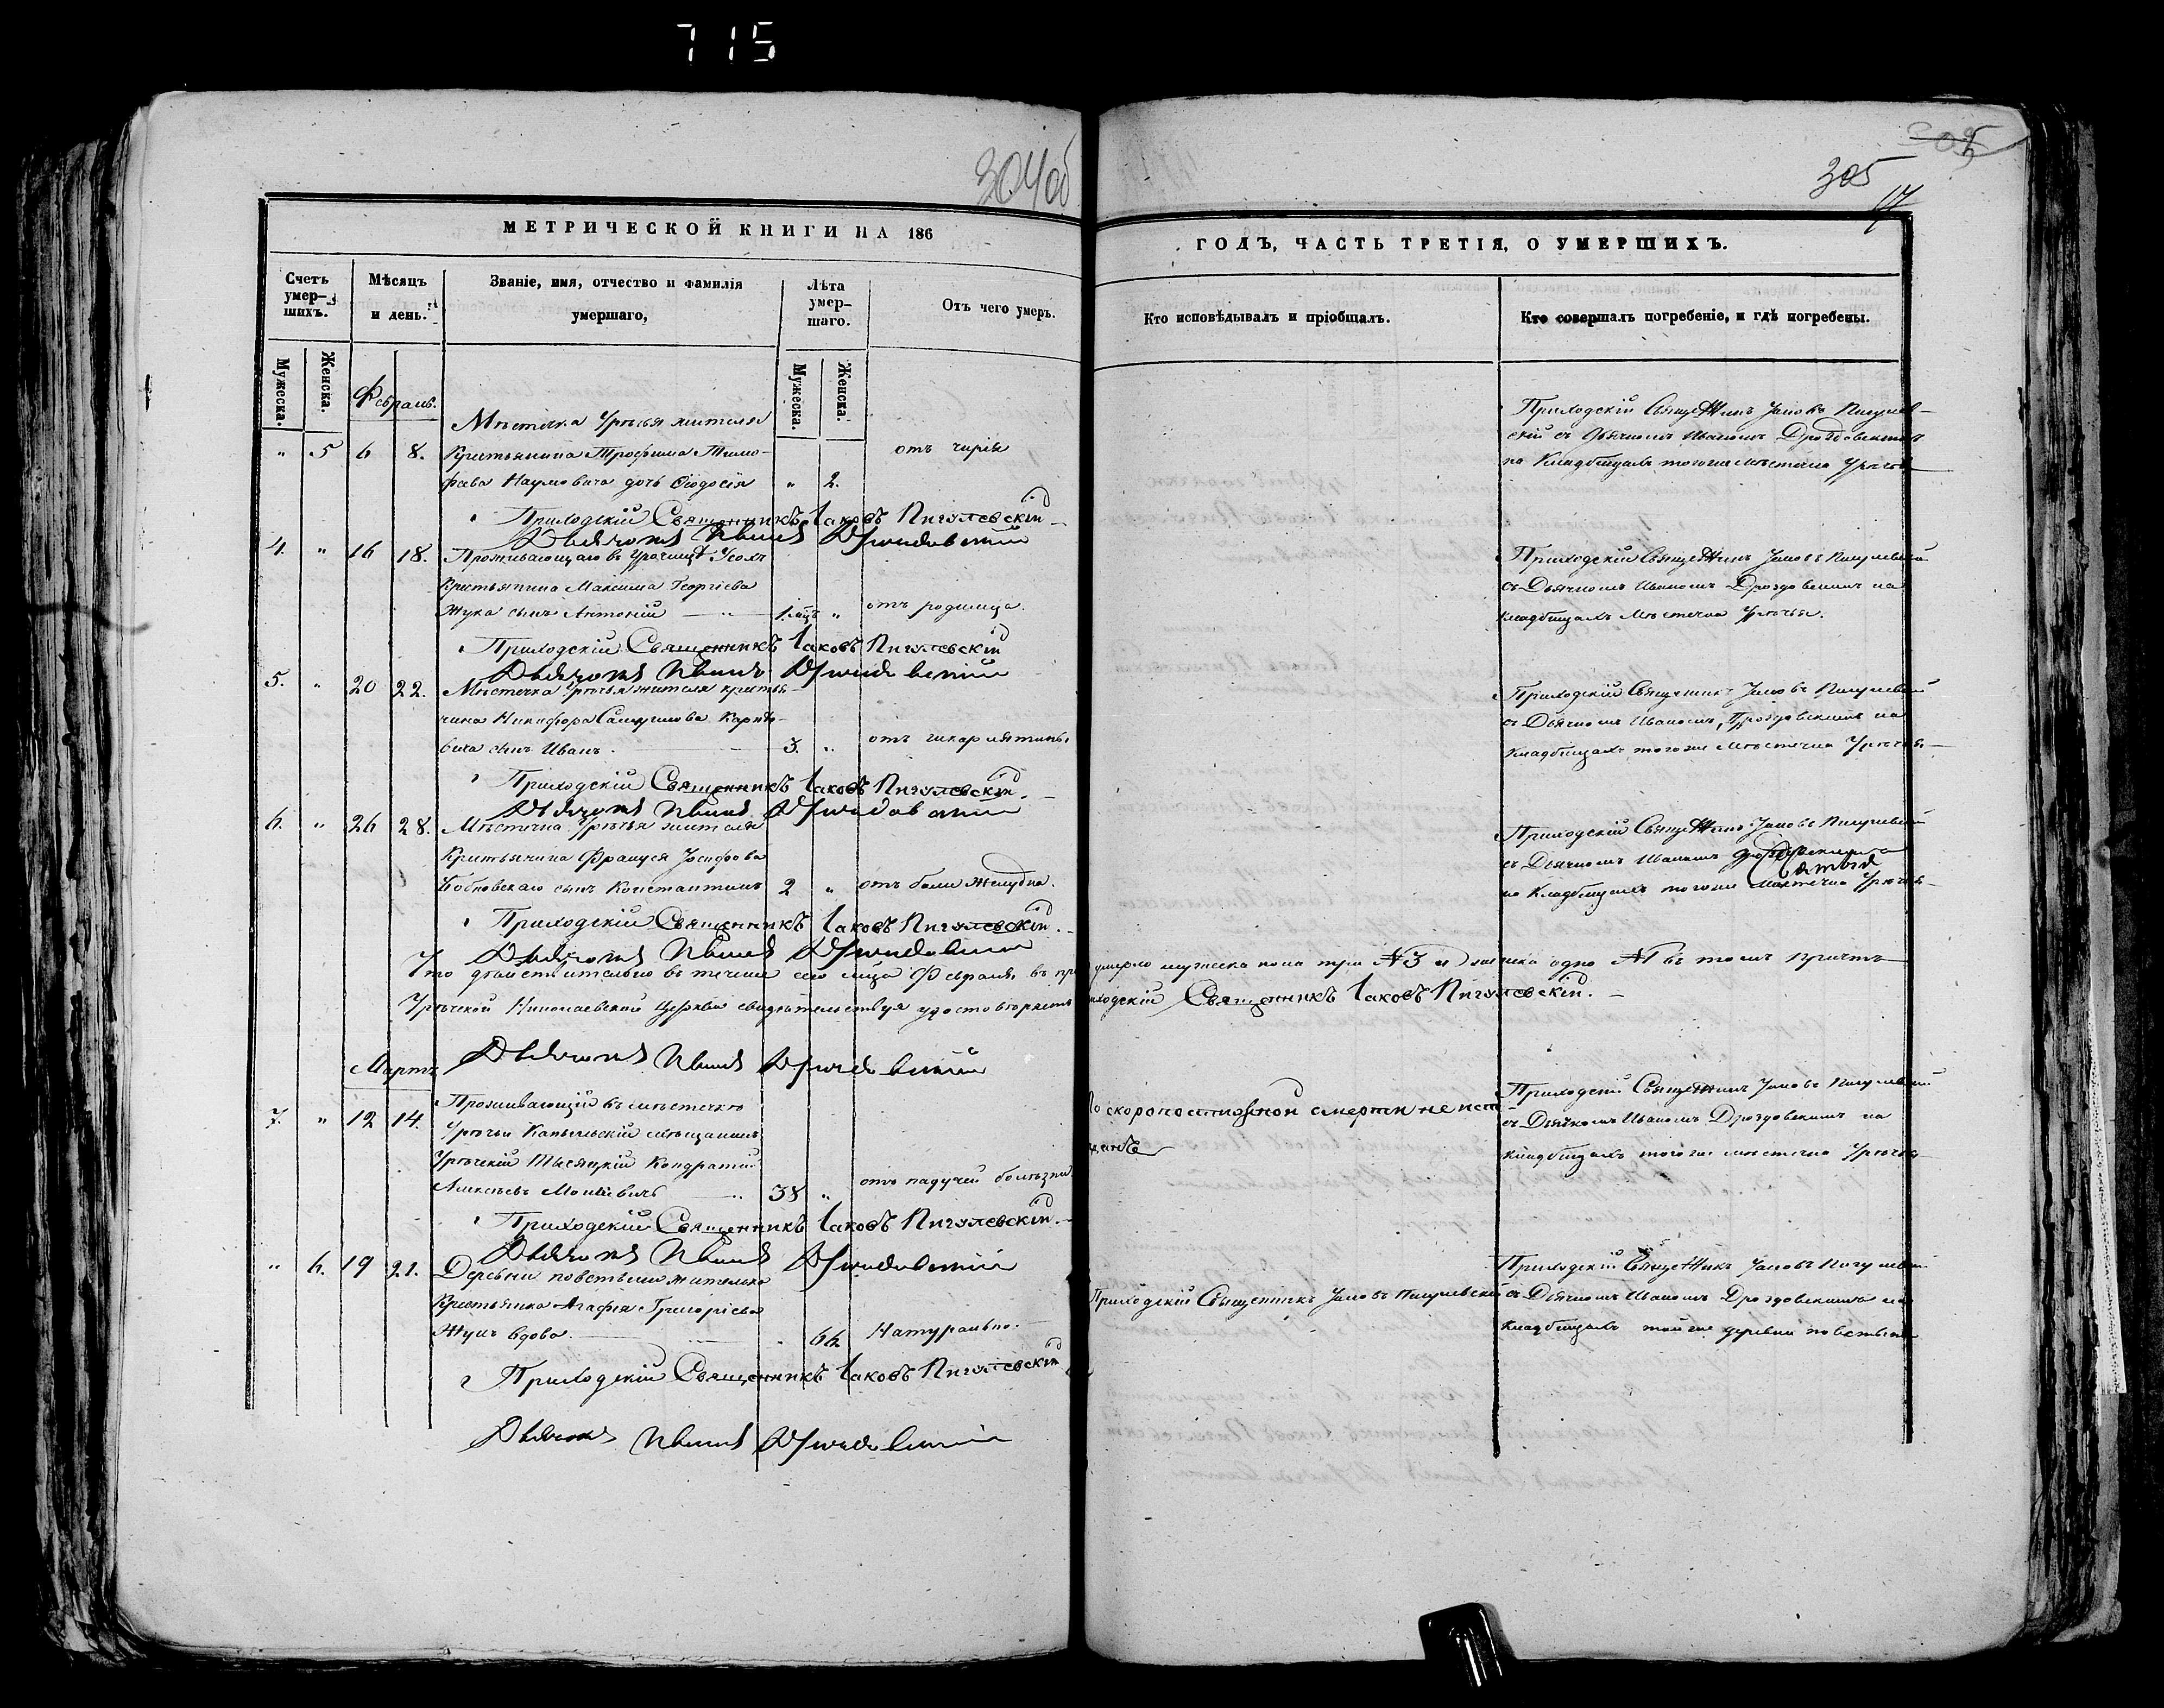 715
304об
305
305
17
МЕТРИЧЕСКОЙ КНИГИ НА 186
ГОДЪ, ЧАСТЬ ТРЕТІЯ, О УМЕРШИХЪ.
Счетъ умер-шихъ.
Мѣсяцъ и день.
Званіе, имя, отчество и фамилія умершаго,
Лѣта умер-шаго.
Отъ чего умеръ.
Кто исповѣдывалъ и пріобщалъ.
Кто совершалъ погребеніе, и гдѣ погребены.
Мужеска.
Женска.
Мужеска.
Женска.
Февраль.
Мѣстечка Урѣчья жителя
" 5 6 8. Крестьянина Трофима Тимо-
фѣева Наумовича дочь Ѳеодосія " 2.
отъ чирія
Приходскій Священникъ Іаковъ Пигулев-
скій съ Дьячкомъ Иваномъ Дроздовскимъ
на Кладбищахъ тогоже мѣстечка Урѣчья
Приходскій Священникъ Іаковъ Пигулевскій
Дьячокъ Иванъ Дроздовский
4. " 16 18. Проживающаго въ Урочищѣ
Крестьянина Максима Георгіева
Жука сынъ Антоній 1. " отъ родимца.
Приходскій Священникъ Іаковъ Пигулевскій
съ Дьячкомъ Иваномъ Дроздовскимъ на
кладбищахъ Мѣстечка Урѣчья.
Приходскій Священникъ Іаковъ Пигулевскій
Дьячокъ Иванъ Дроздовский
5. " 20 22. Мѣстечка Урѣчья жителя крестья-
нина Никифора Самуилова Карпо-
вича сынъ Иванъ. 3. "
Приходскій Священникъ Іаковъ Пигулевскій
съ Дьячкомъ Иваномъ Дроздовскимъ на
Кладбищахъ тогоже Мѣстечка Урѣчья
Приходскій Священникъ Іаковъ Пигулевскій.
Дьячокъ Иванъ Дроздовский
6. " 26 28. Мѣстечка Урѣчья жителя
Крестьянина Осифова
Бобковскаго сынъ Константинъ 2 " отъ боли желудка.
Приходскій Священникъ Іаковъ Пигулевскій
съ Дьячкомъ Иваномъ Дроздовскимъ
на Кладбищахъ тогоже мѣстечка Урѣчья
Приходскій Священникъ Іаковъ Пигулевскій.
Дьячокъ Иванъ Дроздовский
Что дѣйствительно въ теченіи сего м-ца Февраля, въ умерло мужеска пола три №3 и женска одно №1 въ томъ причтъ
Урѣчской Николаевской Церкви свидѣтельствуя удостовѣряетъ Приходскій Священникъ Іаковъ Пигулевскій.
Дьячокъ Иванъ Дроздовский
Мартъ
Проживающій въ мѣстечкѣ
7. " 12 14. Урѣчьи Капыльскій мѣщанинъ
Урѣчскій Тысяцкій Кондратій
Алексѣевъ 38 " отъ падучей болѣзни
По скоропостижной смерти не
Приходскій Священникъ Іаковъ Пигулевскій
съ Дьячкомъ Иваномъ Дроздовскимъ на
кладбищахъ тогоже мѣстечка Урѣчья
Приходскій Священникъ Іаковъ Пигулевскій.
Дьячокъ Иванъ Дроздовский
" 6. 19 21. Деревни жителька
Крестьянка Агафія Григоріева
Жукъ вдова. 66 Натурально.
Приходскій Священникъ Іаковъ Пигулевскій
Приходскій Священникъ Іаковъ Пигулевскій
съ Дьячкомъ Иваномъ Дроздовскимъ на
кладбищахъ тойже деревни
Приходскій Священникъ Іаковъ Пигулевскій
Дьячокъ Иванъ Дроздовский